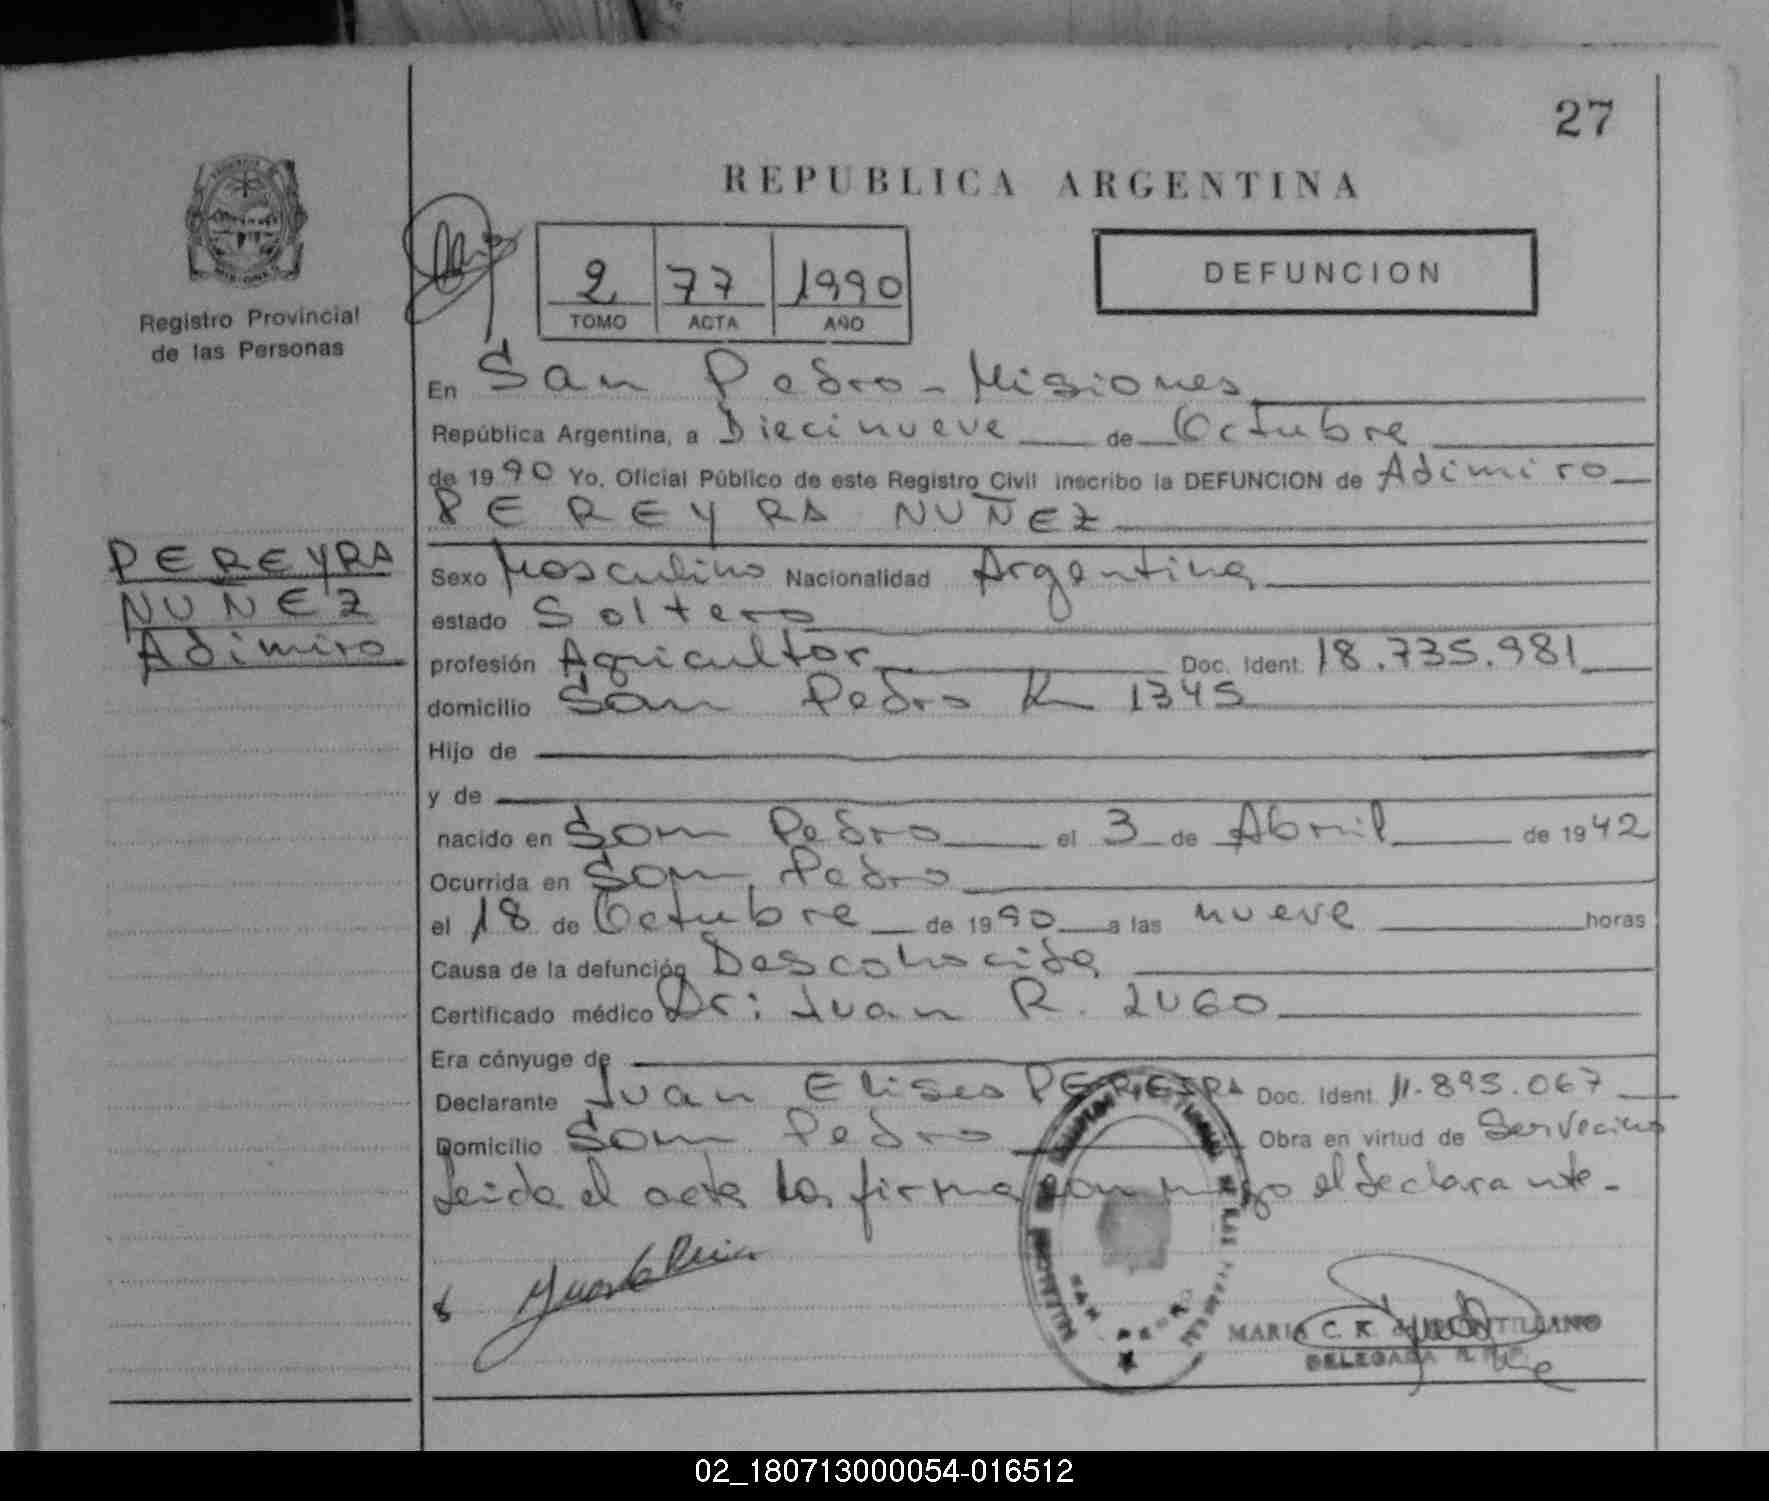 27
REPUBLICA ARGENTINA
DEFUNCION
2 77 1990
TOMO ACTA AÑO
Registro Provincial
de las Personas
En San Pedro - Misiones
República Argentina, a Diecinueve de Octubre
de 1990 Yo, Oficial Público de este Registro Civil inscribo la DEFUNCION de Adimiro
PEREYRA NUÑEZ
PEREYRA
NUÑEZ
Adimiro
Sexo Masculino Nacionalidad Argentina
estado Soltero
profesión Agricultor Doc. Ident. 18.735.981
domicilio San Pedro K 1345
Hijo de
y de
nacido en San Pedro el 3 de Abril de 1942
Ocurrida en San Pedro
el 18 de Octubre de 1990 a las nueve horas
Causa de la defunción Desconocida
Certificado médico Dr: Juan R. LUGO
Era cónyuge de
Declarante Juan Eliseo PEREIRA Doc. Ident. 11.895.067
Domicilio San Pedro Obra en virtud de
Leida el acta la firma conmigo el declarante.
SAN PEDRO
MARIA C. K. de
DELEGADA
02_180713000054-016512